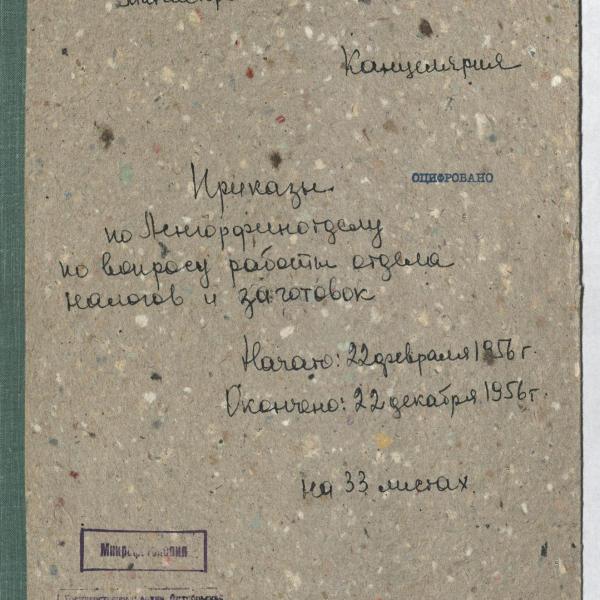 Канцелярия
ОЦИФРОВАНО
Приказы
по Ленгорфинотделу
по вопросу работы отдела
налогов и заготовок
Начато: 22 февраля 1956 г.
Окончено: 22 декабря 1956 г.
на 33 листах